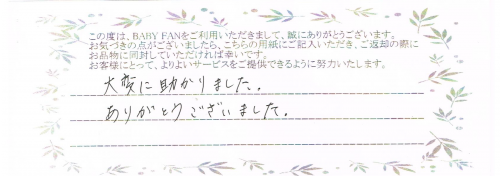 この度は、BABY FANをご利用いただきまして、誠にありがとうございます。
お気づきの点がございましたら、こちらの用紙にご記入いただき、ご返却の際に
お品物に同封していただければ幸いです。
お客様にとって、よりよいサービスをご提供できるように努力いたします。
大変に助かりました。
ありがとうございました。